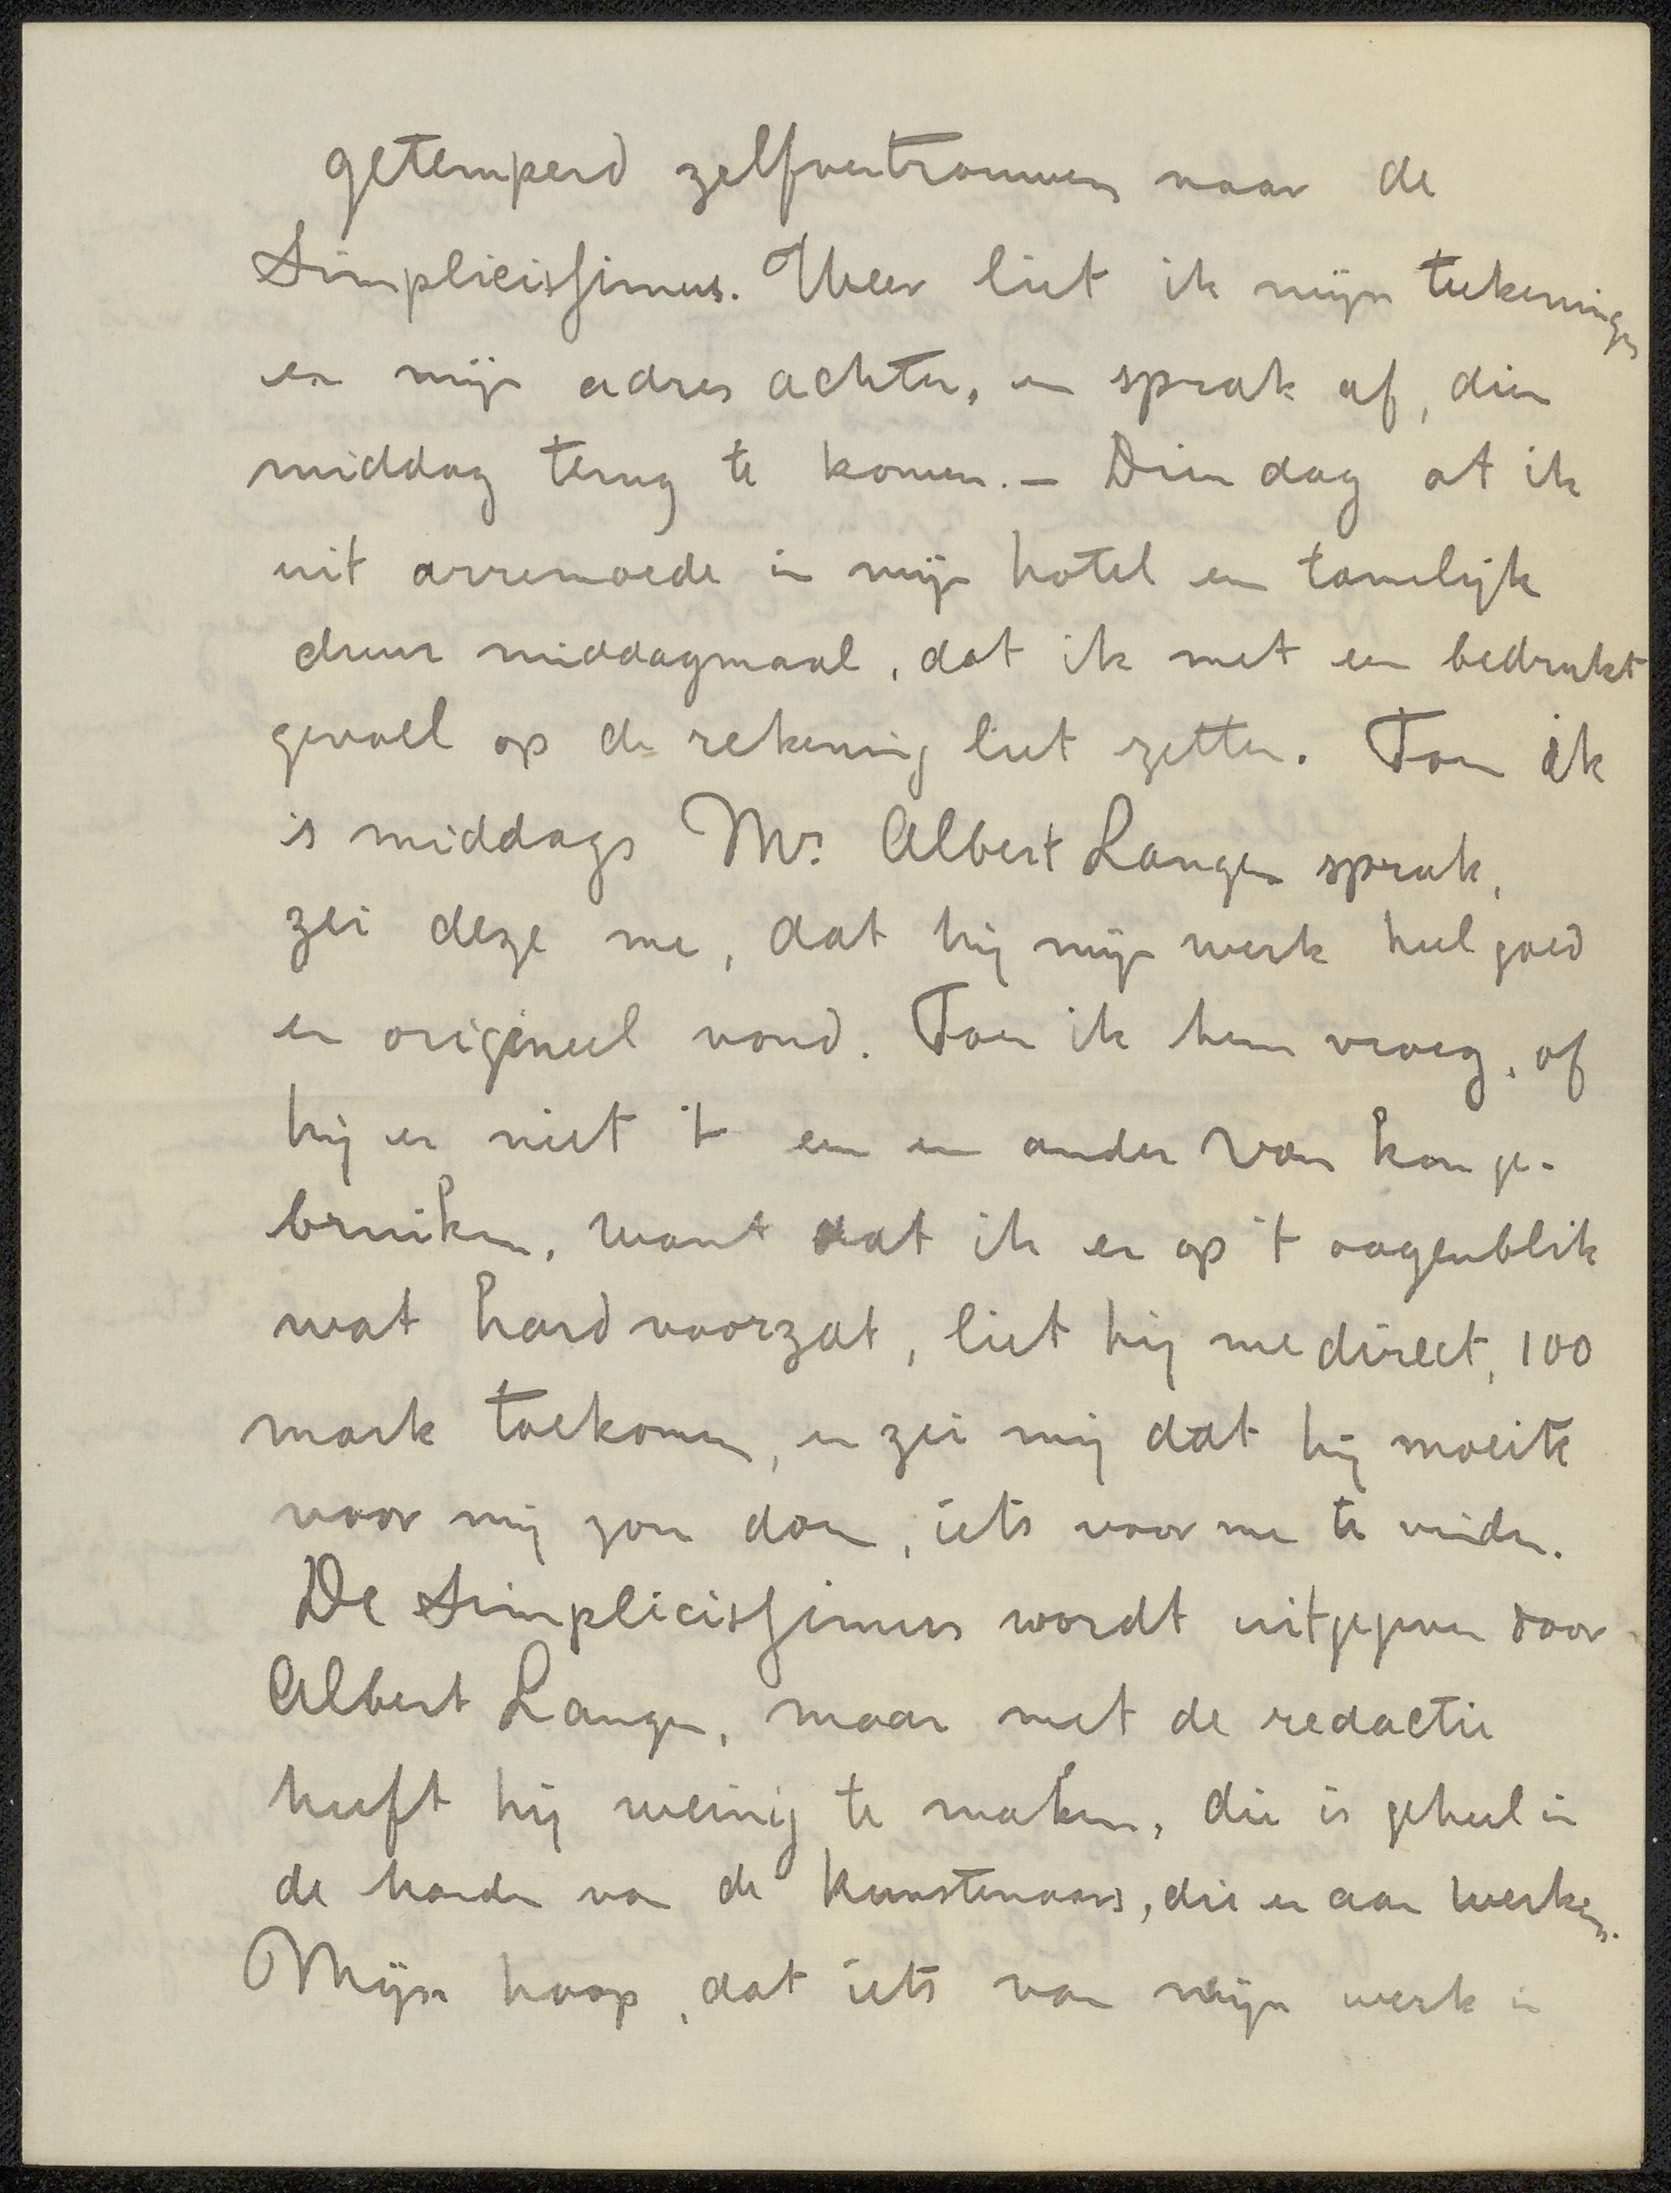 getemperd zelfvertrouwen naar de
Simplicissimus. Weer liet ik mijn teekeningen
en mijn adres achter, en sprak af, dien
middag terug te komen. — Dien dag at ik
uit arremoede in mijn hotel een tamelijk
duur middagmaal, dat ik met een bedrukt
gevoel op de rekening liet zetten. Toen ik
's middags Mr. Albert Langen sprak,
zei deze me, dat hij mijn werk heel goed
en origineel vond. Toen ik hem vroeg, of
hij er niet 't een en ander van kon ge-
bruiken, want dat ik er op 't oogenblik
wat hard voorzat, liet hij me direct, 100
mark toekomen, en zei mij dat hij moeite
voor mij zou doen, iets voor me te vinden.
De Simplicissimus wordt uitgegeven door
Albert Langen, maar met de redactie
heeft hij weinig te maken, die is geheel in
de handen van de kunstenaars, die er aan werken.
Mijn hoop, dat iets van mijn werk in